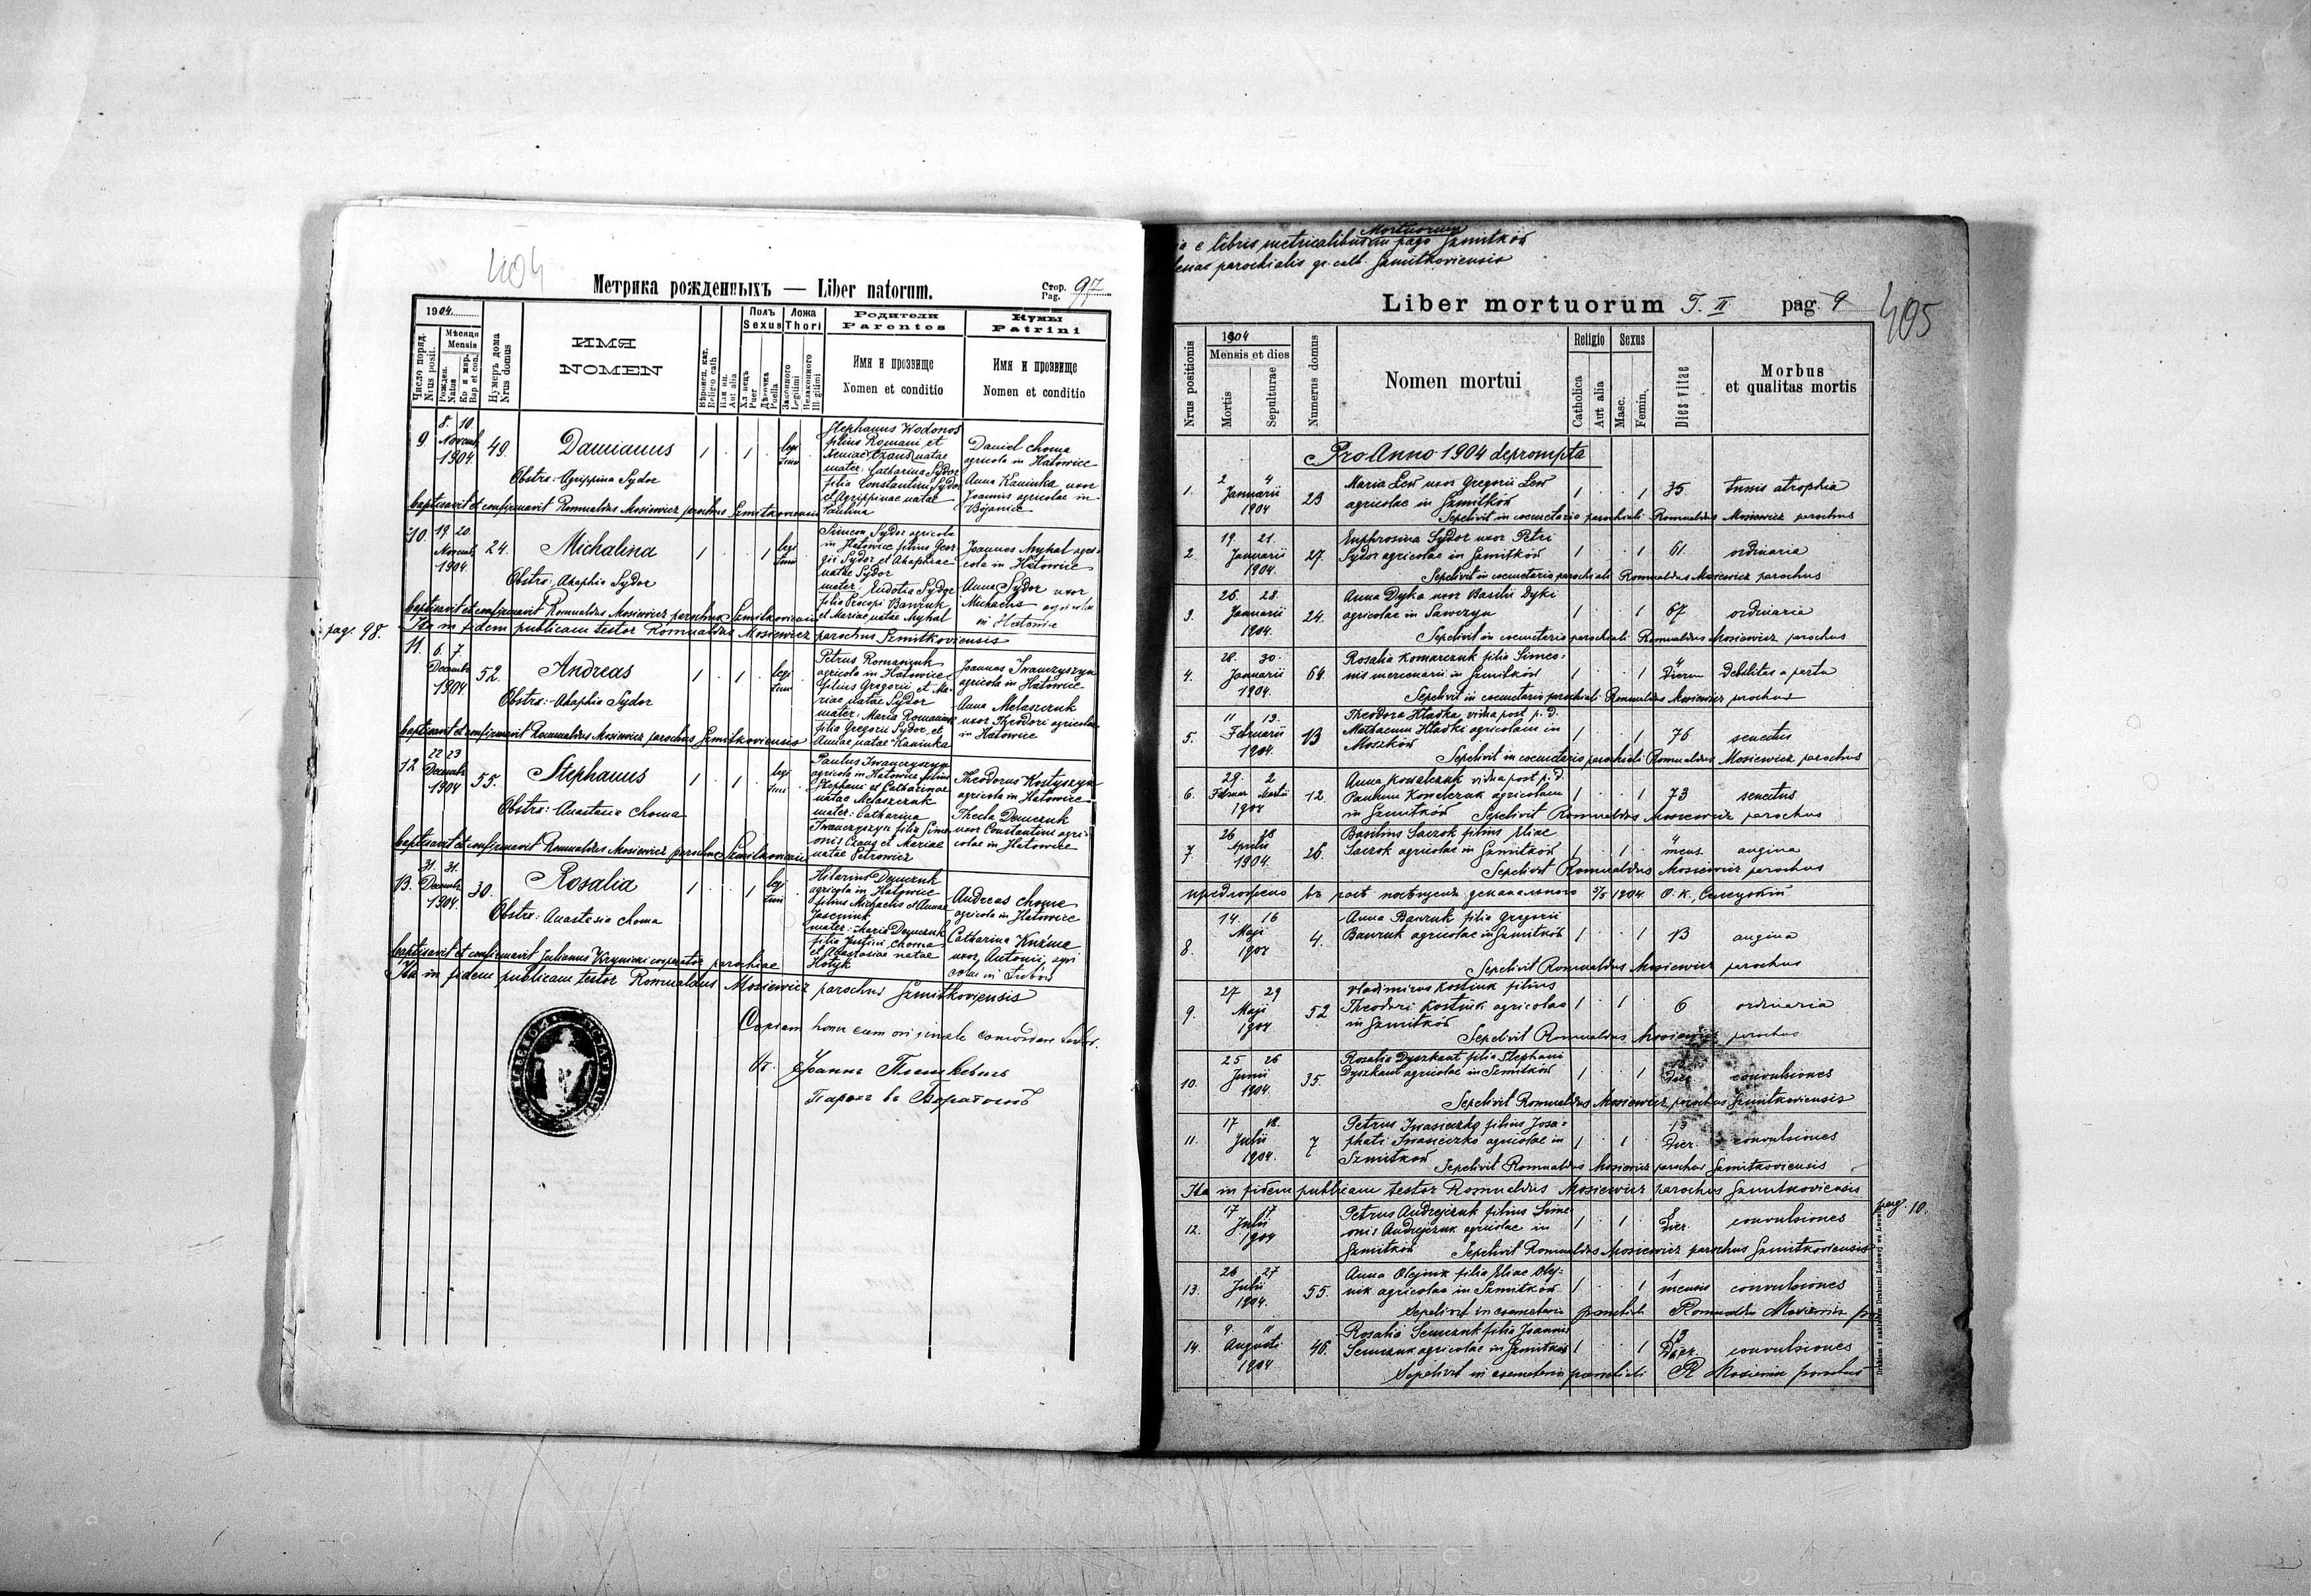 404
Метрика рожденныхъ — Liber natorum.
Стор. Pag. 97
1904
Число поряд. Nrus posit.
Мѣсяца Mensis
Рожден. Natus
Кр. и мир. Bap et con.
Нумеръ дома Nrus domus
ИМЯ
NOMEN
Religio cath
Или ин. Aut alia
Полъ Sexus
Хлопецъ Puer
Дѣвочка Puella
Ложа Thori
Законного Legitimi
Незаконного Illegitimi
Родители
Parentes
Имя и прозвище
Nomen et conditio
Кумы
Patrini
Имя и прозвище
Nomen et conditio
9. 8. 10. Novemb. 1904 49. Damianus 1 . 1 . legi timi
Obstrx: Agrippina Sydor
Stephanus Wodonos
filius Romani et
Xeniae Czaus natae
mater: Catharina Sydor
filia Constantini Sydor
et Agrippinae natae
Paulina
Daniel Choma
agricola in Hatowice
Anna Kaninka uxor
Joannis agricolae in
Bojanice
baptisavit et confirmavit Romualdus Mosiewicz parochus Szmitkoviensis
10. 19. 20. Novemb. 1904. 24. Michalina 1 . . 1 legi timi
Obstrx: Ahaphia Sydor
Simeon Sydor agricola
in Hatowice filius Geor
gii Sydor et Ahaphiae
natae Sydor
mater: Eudotia Sydor
filia Procopi Bawruk
et Mariae natae Myhal
Joannes Myhal agri-
cola in Hatowice
Anna Sydor uxor
Michaelis agricolae
in Hatowice
baptisavit et confirmavit Romualdus Mosiewicz parochus Szmitkoviensis
page 98.
Ita in fidem publicam testor Romualdus Mosiewicz parochus Szmitkoviensis
11. 6. 7. Decemb. 1904 52. Andreas 1 . 1 . legi timi
Obstrx: Ahaphia Sydor
Petrus Romanczuk
agricola in Hatowice
filius Gregorii et Ma-
riae natae Sydor
mater: Maria Romanczuk
filia Gregorii Sydor et
Annae natae Kaninka
Joannes Iwanczyszyn
agricola in Hatowice
Anna Melaszczuk
uxor Theodori agricolae
in Hatowice
baptisavit et confirmavit Romualdus Mosiewicz parochus Szmitkoviensis
12 22 23 Decemb. 1904 55. Stephanus 1 . 1 . legi timi
Obstrx: Anastasia Choma
Paulus Iwanczyszyn
agricola in Hatowice filius
Stephani et Catharinae
natae Melaszczuk
mater: Catharina
Iwanczyszyn filia Sime
onis Czaus et Mariae
natae Petrowicz
Theodorus Kostyszyn
agricola in Hatowice
Thecla Demczuk
uxor Constantini agri-
colae in Hatowice
baptisavit et confirmavit Romualdus Mosiewicz parochus Szmitkoviensis
13. 31. 31. Decemb. 1904. 30. Rosalia 1 . . 1 legi timi
Obstrx: Anastasia Choma
Hilarius Demczuk
agricola in Hatowice
filius Michaelis et Annae
mater: Maria Demczuk
filia Justini Choma
et Anastasiae natae
Hotyk
Andreas Choma
agricola in Hatowice
Catharina Kuźma
uxor Antonii agri
colae in
baptisavit et confirmavit Julianus Krynicki cooperator parochiae
Ita in fidem publicam testor Romualdus Mosiewicz parochus Szmitkoviensis
Copiam hanc cum originale concordare testor.
Парохъ въ
Mortuorum
e libris metricalibus in pago Szmitków
parochialis gr. cath. Szmitkoviensis
Liber mortuorum T. II pag. 9
405
Nrus positionis
1904
Mensis et dies
Mortis
Sepulturae
Numerus domus
Nomen mortui
Religio
Catholica
Aut alia
Sexus
Masc.
Femin.
Dies vitae
Morbus
et qualitas mortis
Pro Anno 1904 deprompta
1. 2 4 Januarii 1904 23 Maria Lew uxor Gregorii Lew
agricolae in Szmitków 1 . . 1 35 tussis atrophia
Sepelivit in coemeterio parochiali Romualdus Mosiewicz parochus
2. 19. 21. Januarii 1904. 27. Euphrosina Sydor uxor Petri
Sydor agricolae in Szmitków 1 . . 1 61. ordinaria
Sepelivit in coemeterio parochiali Romualdus Mosiewicz parochus
3. 26. 28. Januarii 1904. 24. Anna Dyka uxor Basilii Dyki
agricolae in Sawczyn 1 . . 1 67 ordinaria
Sepelivit in coemeterio parochiali Romualdus Mosiewicz parochus
4. 28. 30. Januarii 1904. 64. Rosalia Komarczuk filia Simeo-
nis mercenarii in Szmitków 1 . . 1 4 Dierum debilitas a partu
Sepelivit in coemeterio parochiali Romualdus Mosiewicz parochus
5. 11 13. Februarii 1904. 13 Theodora Hładka vidua post p. d.
Mathaeum Hładki agricolam in
Moszków 1 . . 1 76 senectus
Sepelivit in coemeterio parochiali Romualdus Mosiewicz parochus
6. 29. 2 Februar Martii 1904 12. Anna Kowalczuk vidua post p. d.
Paulum Kowalczuk agricolam
in Szmitków 1 . . 1 73 senectus
Sepelivit Romualdus Mosiewicz parochus
7 26 28 Aprilis 1904. 26. Basilius Saczok filius Eliae
Saczok agricolae in Szmitków 1 . 1 . 4 mens. angina
Sepelivit Romualdus Mosiewicz parochus
предложено въ часѣ посѣщенія деканального 5/5 1904. О. К.
8. 14. 16 Maji 1904 4. Anna Bawruk filia Gregorii
Bawruk agricolae in Szmitków 1 . . 1 13 angina
Sepelivit Romualdus Mosiewicz parochus
9. 27 29 Maji 1904 52 Vladimirus Kostiuk filius
Theodori Kostiuk agricolae
in Szmitków 1 . 1 . 6 ordinaria
Sepelivit Romualdus Mosiewicz parochus
10. 25 26 Junii 1904. 35. Rosalia Dyszkant filia Stephani
Dyszkant agricolae in Szmitków 1 . . 1 Dier. convulsiones
Sepelivit Romualdus Mosiewicz parochus Szmitkoviensis
11. 17 18. Julii 1904. 7 Petrus Iwasieczko filius Josa-
phati Iwasieczko agricolae in
Szmitków 1 . 1 . 13 Dier. convulsiones
Sepelivit Romualdus Mosiewicz parochus Szmitkoviensis
Ita in fidem publicam testor Romualdus Mosiewicz parochus Szmitkoviensis
pag. 10.
12. 17 17 Julii 1904 Petrus Andrejczuk filius Sime
onis Andrejczuk agricolae in
Szmitków 1 . 1 . 8 Dier. convulsiones
Sepelivit Romualdus Mosiewicz parochus Szmitkoviensis
13. 26 27 Julii 1904. 55. Anna Olejnik filia Eliae Olej-
nik agricolae in Szmitków 1 . . 1 1 mensis convulsiones
Sepelivit in coemeterio parochiali Romualdus Mosiewicz
14. 9. 11 Augusti 1904 46. Rosalia Semczuk filia Joannis
Semczuk agricolae in Szmitków 1 . . 1 13 Dier. convulsiones
Sepelivit in coemeterio parochiali R Mosiewicz parochus
Drukiem i nakładem Drukarni Ludowej we Lwowie